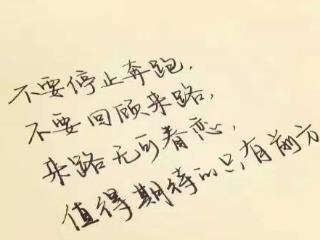 不要停止奔跑,
不要回顾来路,
来路无可眷恋,
值得期待的只有前方